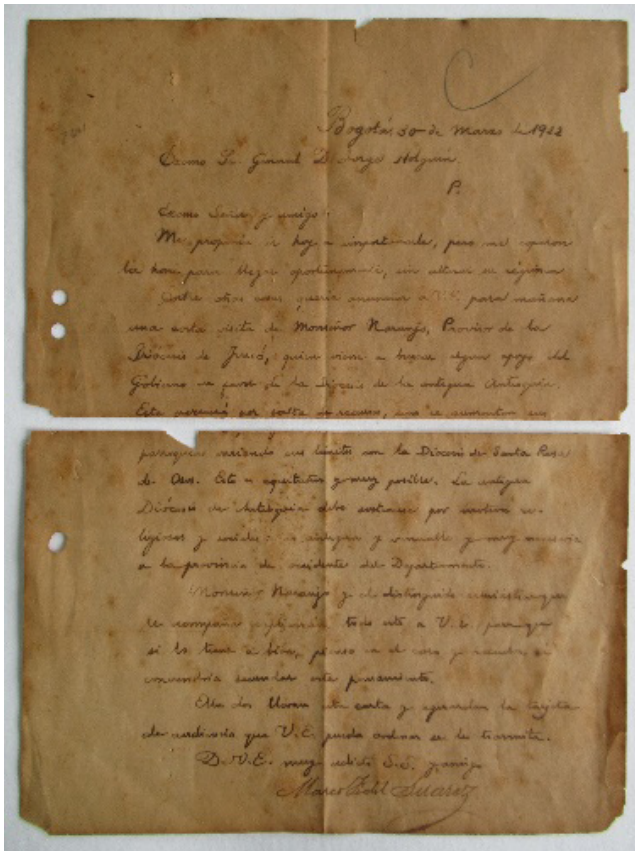 Bogotá, 30 de Marzo de 1922
Excmo Sr. General D. Jorge Holguín.
P.
Excmo Señor y amigo:
Me proponía ir hoy a importunarle, pero me coparon
la hora para llegar oportunamente, sin alterar su régimen
Entre otras cosas quería anunciar a V.E. para mañana
una corta visita de Monseñor Naranjo, Provisor de la
Diócesis de Jericó, quien viene a buscar algún apoyo del
Gobierno en favor de la Diócesis de la antigua Antioquia.
Esta perecerá por falta de recursos, si no se aumentan sus
parroquias variando sus límites con la Diócesis de Santa Rosa
de Osos. Esto es equitativo y muy posible. La antigua
Diócesis de Antioquia debe sostenerse por motivos re-
ligiosos y sociales: es antigua y venerable y muy necesaria
a la provincia de occidente del Departamento.
Monseñor Naranjo y el distinguido eclesiástico que
le acompaña explicarán todo esto a V.E. para que
si lo tiene a bien, piense en el caso y resuelva si
convendría secundar este pensamiento.
Ellos dos llevan esta carta y aguardan la tarjeta
de audiencia que V.E. pueda ordenar se les transmita.
De V.E. muy adicto S.S. y amigo
Marco Fidel Suárez